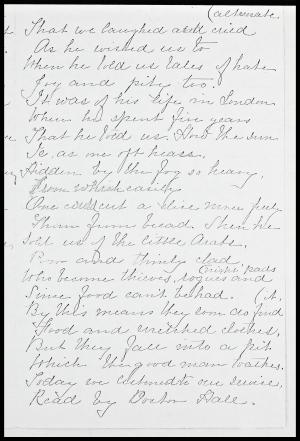 (alternate.
That we laughed and cried
As he wished us to
When he told us tales of hate
Joy and pity too.
It was of his life in London
When he spent five years
That he told us. And the sun
Is, as one oft hears,
Hidden by the fog so heavy,
From which easily
One could cut a slice
Then he
told us of the little Arabs.
Poor and thinly clad,
Who become thieves, rogues and
Since food can't be had. (it,
By this means they can as find
Food and wretched clothes,
But they fall into a pit
Which the good man loathes.
Today we listened to our service,
Read by Doctor Hale.